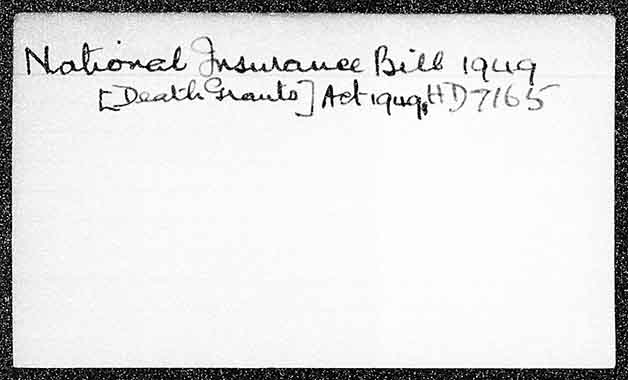 National Insurance Bill 1949
[Death Grants] Act 1949, HD7165